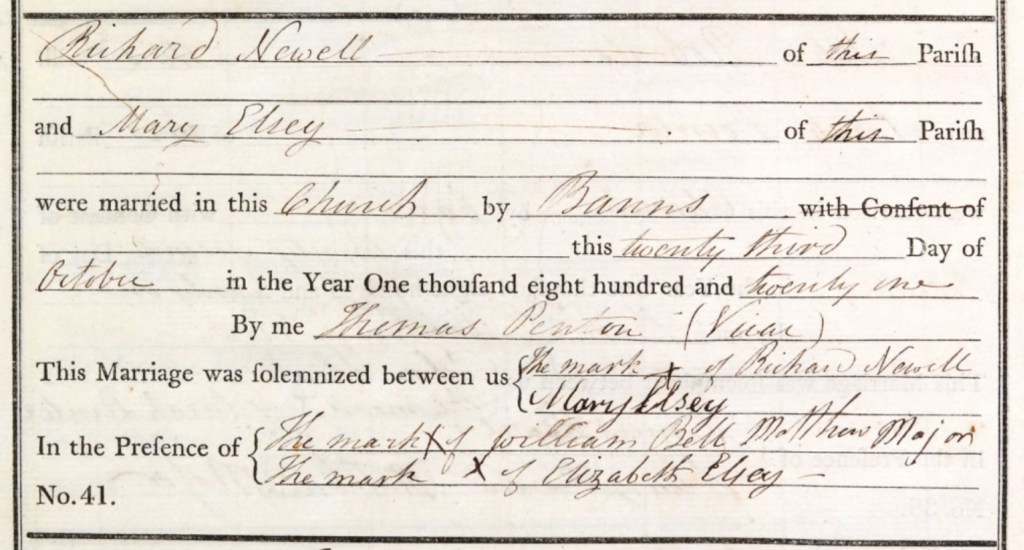 Richard Newell of this Pariſh
and Mary Elsey of this Pariſh
were married in this Church by Banns with Conſent of
this twenty third Day of
October in the Year One thouſand eight hundred and twenty one
By me Thomas Penton (Vicar)
This Marriage was ſolemnized between us { The mark x of Richard Newell
Mary Elsey
In the Preſence of { The mark x of William Bell Matthew Major
The mark x of Elizabeth Elsey
No. 41.